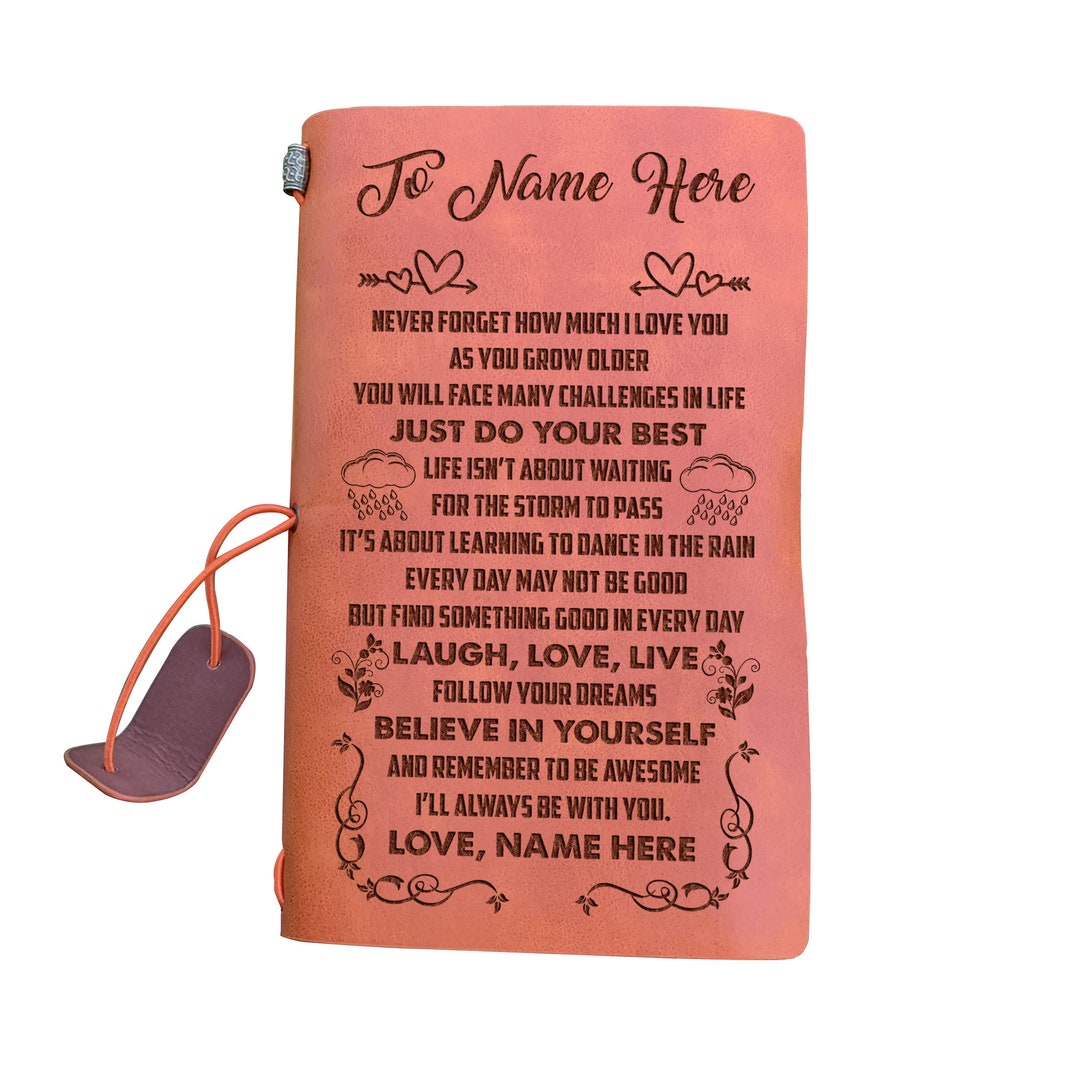 To Name Here
NEVER FORGET HOW MUCH I LOVE YOU
AS YOU GROW OLDER
YOU WILL FACE MANY CHALLENGES IN LIFE
JUST DO YOUR BEST
LIFE ISN'T ABOUT WAITING
FOR THE STORM TO PASS
IT'S ABOUT LEARNING TO DANCE IN THE RAIN
EVERY DAY MAY NOT BE GOOD
BUT FIND SOMETHING GOOD IN EVERY DAY
LAUGH, LOVE, LIVE
FOLLOW YOUR DREAMS
BELIEVE IN YOURSELF
AND REMEMBER TO BE AWESOME
I'LL ALWAYS BE WITH YOU.
LOVE, NAME HERE